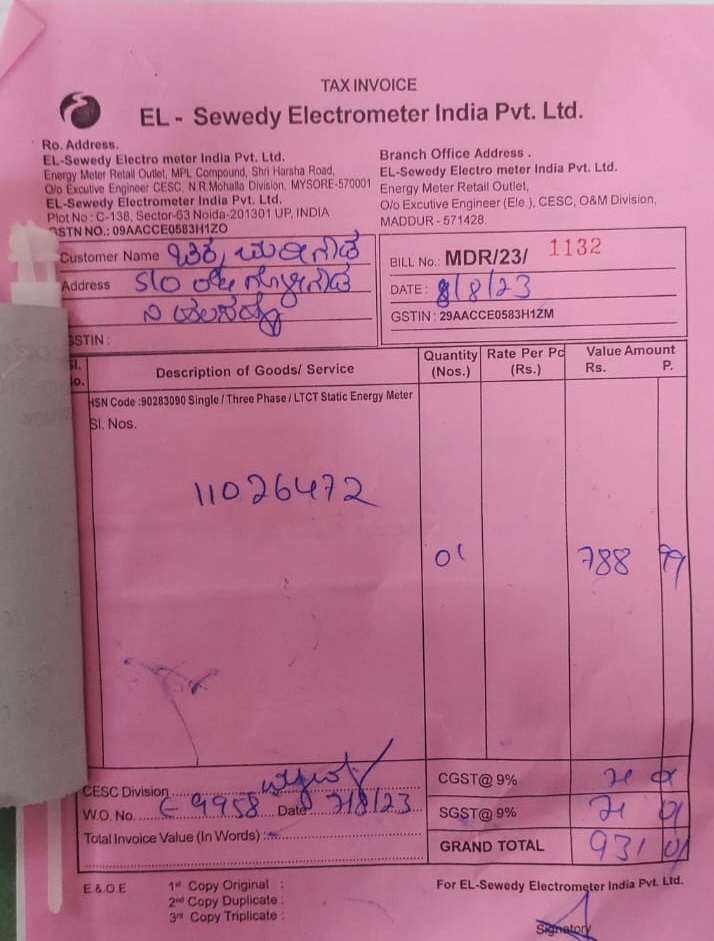 TAX INVOICE
EL - Sewedy Electrometer India Pvt. Ltd.
Ro. Address.
EL-Sewedy Electro meter India Pvt. Ltd.
Energy Meter Retail Outlet, MPL Compound, Shri Harsha Road,
O/o Excutive Engineer CESC, N.R.Mohalla Division, MYSORE-570001
EL-Sewedy Electrometer India Pvt. Ltd.
Plot No : C-138, Sector-63 Noida-201301 UP, INDIA
GSTN NO.: 09AACCE0583H1ZO
Branch Office Address .
EL-Sewedy Electro meter India Pvt. Ltd.
Energy Meter Retail Outlet,
O/o Excutive Engineer (Ele.), CESC, O&M Division,
MADDUR - 571428.
Customer Name
Address S/O
GSTIN :
BILL No.: MDR/23/ 1132
DATE : 8/8/23
GSTIN : 29AACCE0583H1ZM
Sl. No. Description of Goods/ Service Quantity (Nos.) Rate Per Pc (Rs.) Value Amount Rs. P.
HSN Code :90283090 Single / Three Phase / LTCT Static Energy Meter
Sl. Nos.
11026472
01 788 99
CESC Division
W.O. No. 9958 Date 7/8/23
Total Invoice Value (In Words) :
CGST@ 9% 71 01
SGST@ 9% 71 01
GRAND TOTAL 931 01
E.& O.E
1st Copy Original :
2nd Copy Duplicate :
3rd Copy Triplicate :
For EL-Sewedy Electrometer India Pvt. Ltd.
Signatory